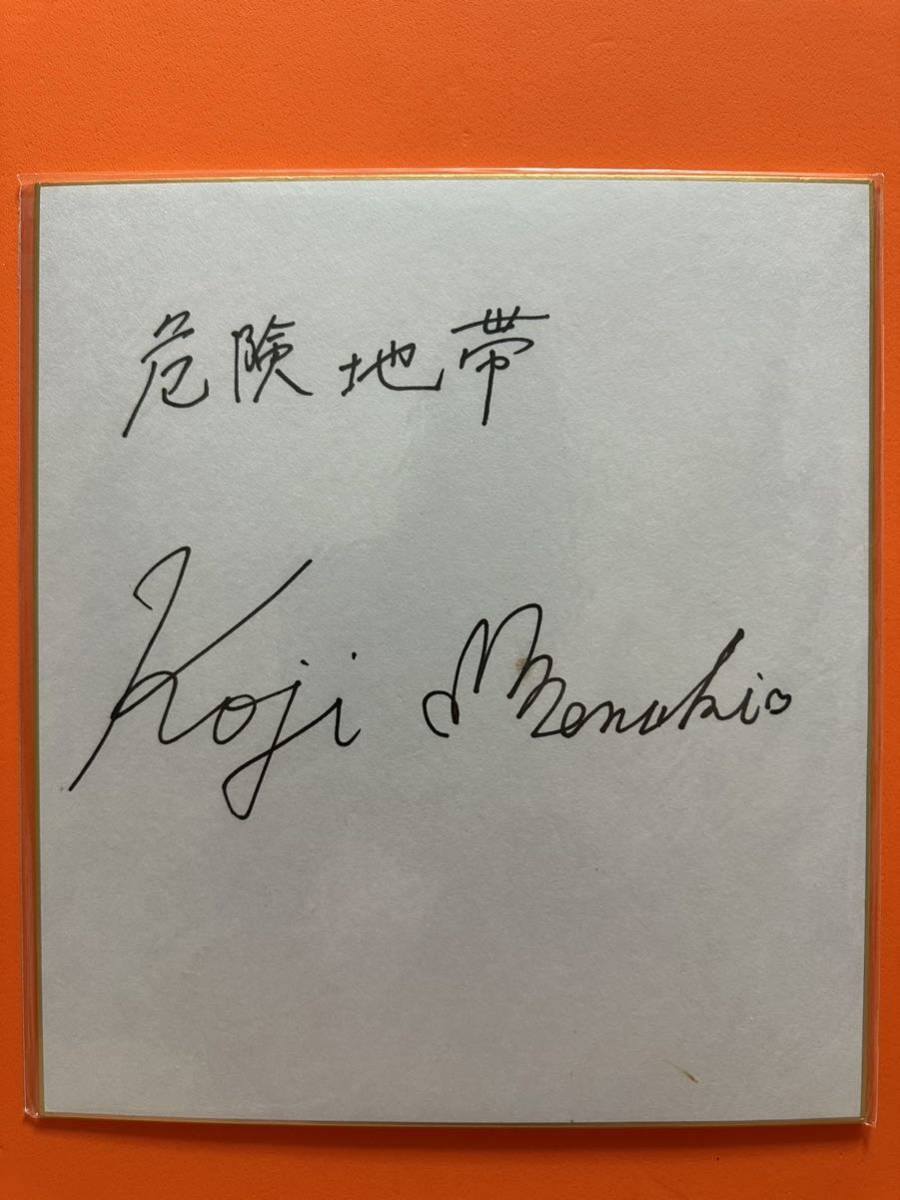 危険地帯
Koji